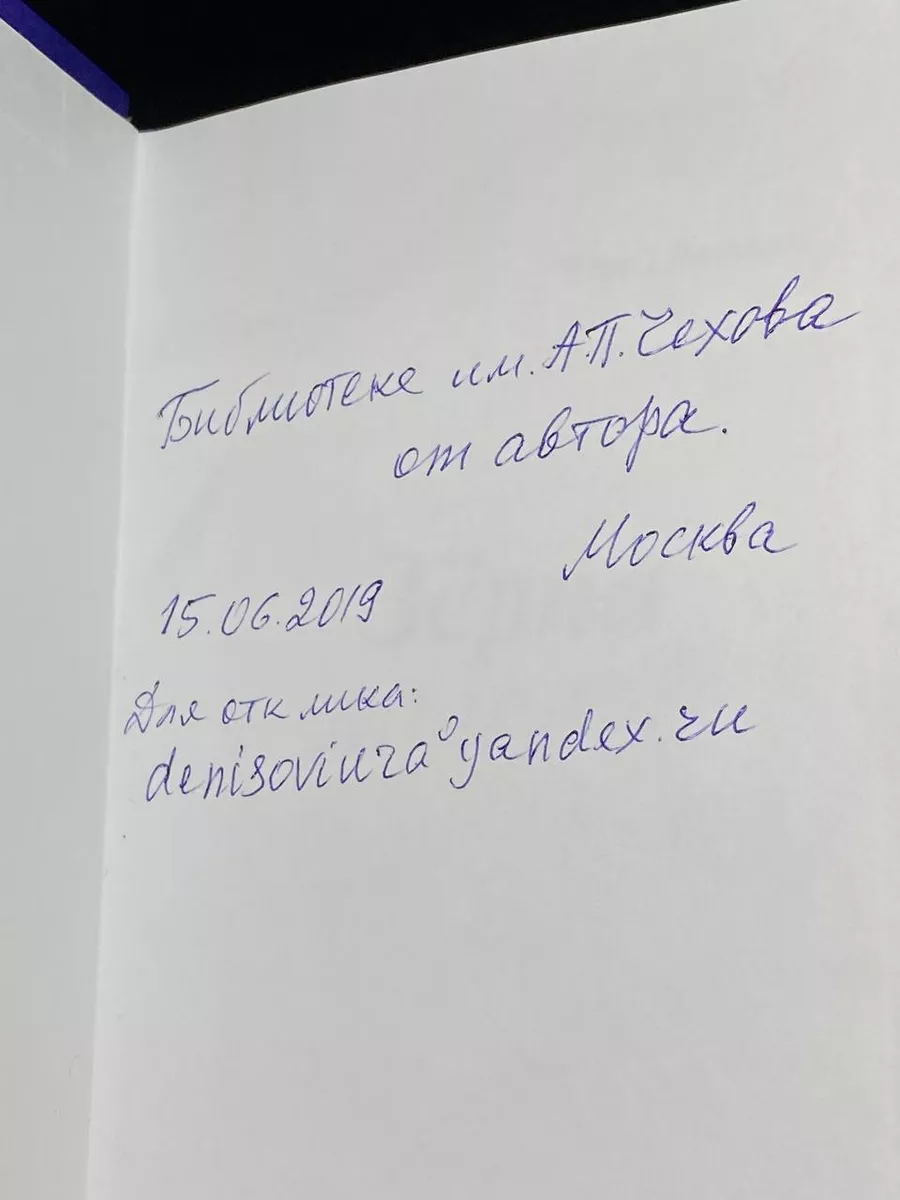 Библиотеке им. А.П. Чехова
от автора.
Москва
15.06.2019
Для отклика:
denisoviura@yandex.ru